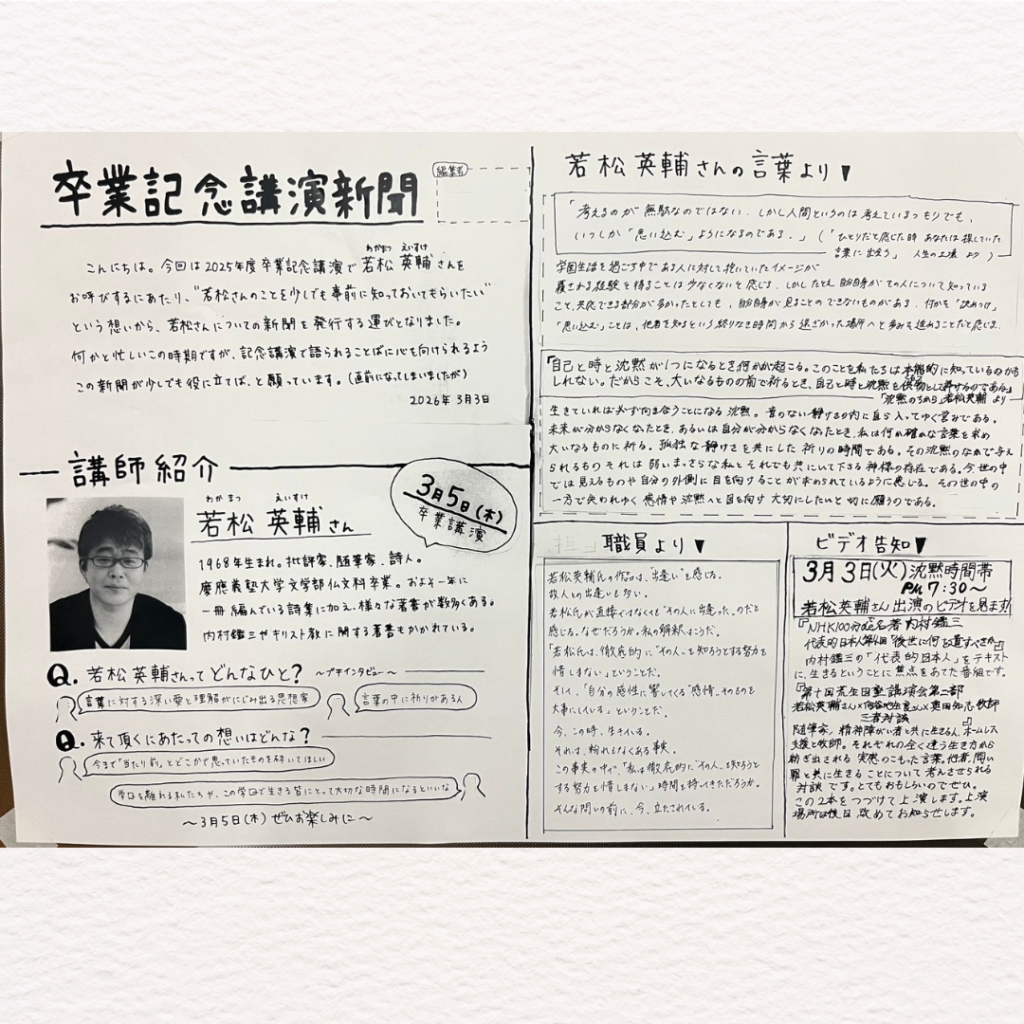 卒業記念講演新聞
編集者
こんにちは。今回は2025年度卒業記念講演で若松 英輔さんを
わかまつ えいすけ
お呼びするにあたり、"若松さんのことを少しでも事前に知っておいてもらいたい"
という想いから、若松さんについての新聞を発行する運びとなりました。
何かと忙しいこの時期ですが、記念講演で語られることばに心を向けられるよう
この新聞が少しでも役に立てば、と願っています。(直前になってしまいましたが)
2026年 3月3日
講師紹介
わかまつ えいすけ
若松 英輔さん
3月5日(木)
卒業講演
1968年生まれ。批評家、随筆家、詩人。
慶應義塾大学文学部仏文科卒業。およそ一年に
一冊編んでいる詩集に加え、様々な著書が数多くある。
内村鑑三やキリスト教に関する著書もかかれている。
Q. 若松英輔さんってどんなひと? 〜プチインタビュー〜
言葉に対する深い愛と理解がにじみ出る思想家
言葉の中に祈りがある人
Q. 来て頂くにあたっての想いはどんな?
今まで「当たり前」とどこかで思っていたものを砕いてほしい
学口を離れる私たちが、この学口で生きる皆にとって大切な時間になるといいな
〜3月5日(木) ぜひお楽しみに〜
若松英輔さんの言葉より▼
「考えるのが無駄なのではない。しかし人間というのは考えているつもりでも、
いつしか「思い込む」ようになるのである。」(「ひとりだと感じた時 あなたは探していた
言葉に出会う」 より)
学園生活を過ごす中である人に対して抱いていたイメージが
覆される経験を得ることは少なくないと感じる。しかしたとえ自分自身がその人について知っている
こと、共感できる部分が多かったとしても、自分自身が見ることのできないものがある。何かを「決めつけ」
「思い込む」ことは、他者を知るという終りなき時間から遠ざかった場所へと歩みを進めることだと感じる。
「自己と時と沈黙が1つになるとき何かが起こる。このことを私たちは本能的に知っているのかも
しれない。だからこそ、大いなるものの前で祈るとき、自己と時と沈黙を供物として捧げるのである」
「沈黙のちから」若松英輔 より
生きていれば必ず向き合うことになる 沈黙。音のない静けさの内に自ら入ってゆく営みである。
未来が分からなくなったとき、あるいは自分が分からなくなったとき、私は何か確かな言葉を求め
大いなるものに祈る。孤独な静けさを共にした祈りの時間である。その沈黙のなかで与え
られるもの それは 弱いまっさらな私とそれでも共にいて下さる神様の存在である。今世の中
では見えるものや自分の外側に目を向けることが求められているように感じる。その世の中の
一方で失われゆく感情や沈黙へと目を向け 大切にしたいと切に願うのである。
職員より▼
若松英輔氏の作品は、"出逢い"を感じる。
故人との出逢いも多い。
若松氏が直接ではなくても"その人に出逢った"のだと
感じる。なぜだろうか。私の解釈はこうだ。
「若松氏は、徹底的に"その人"を知ろうとする努力を
惜しまない」ということだ。
そして、「自分の感性に響いてくる"感情"そのものを
大事にしている」ということだ。
今、この時、生きている。
それは、紛れもなくある事実。
この事実の中で、「私は徹底的に"その人"を知ろうと
する努力を惜しまない」時間を持ってきただろうか。
そんな問いの前に、今、立たされている。
ビデオ告知▼
3月3日(火)沈黙時間帯
PM 7:30〜
若松英輔さん出演のビデオを見ます!!
『NHK100分de名著 内村鑑三
代表的日本人第4回「後世に何を遺すべきか」』
内村鑑三の「代表的日本人」をテキスト
に、生きるということに焦点をあてた番組です。
『第十回荒生田塾講演会第二部
若松英輔さん×向谷地生良さん×奥田知志牧師
三者対談』
随筆家、精神障がい者と共に生きる人、ホームレス
支援と牧師。それぞれの全く違う生き方から
紡ぎ出される 実感のこもった言葉。他者、問い
罪と共に生きることについて 考えさせられる
対談です。とてもおもしろいのでぜひ。
この2本をつづけて上演します。上演
場所は後日 改めてお知らせします。